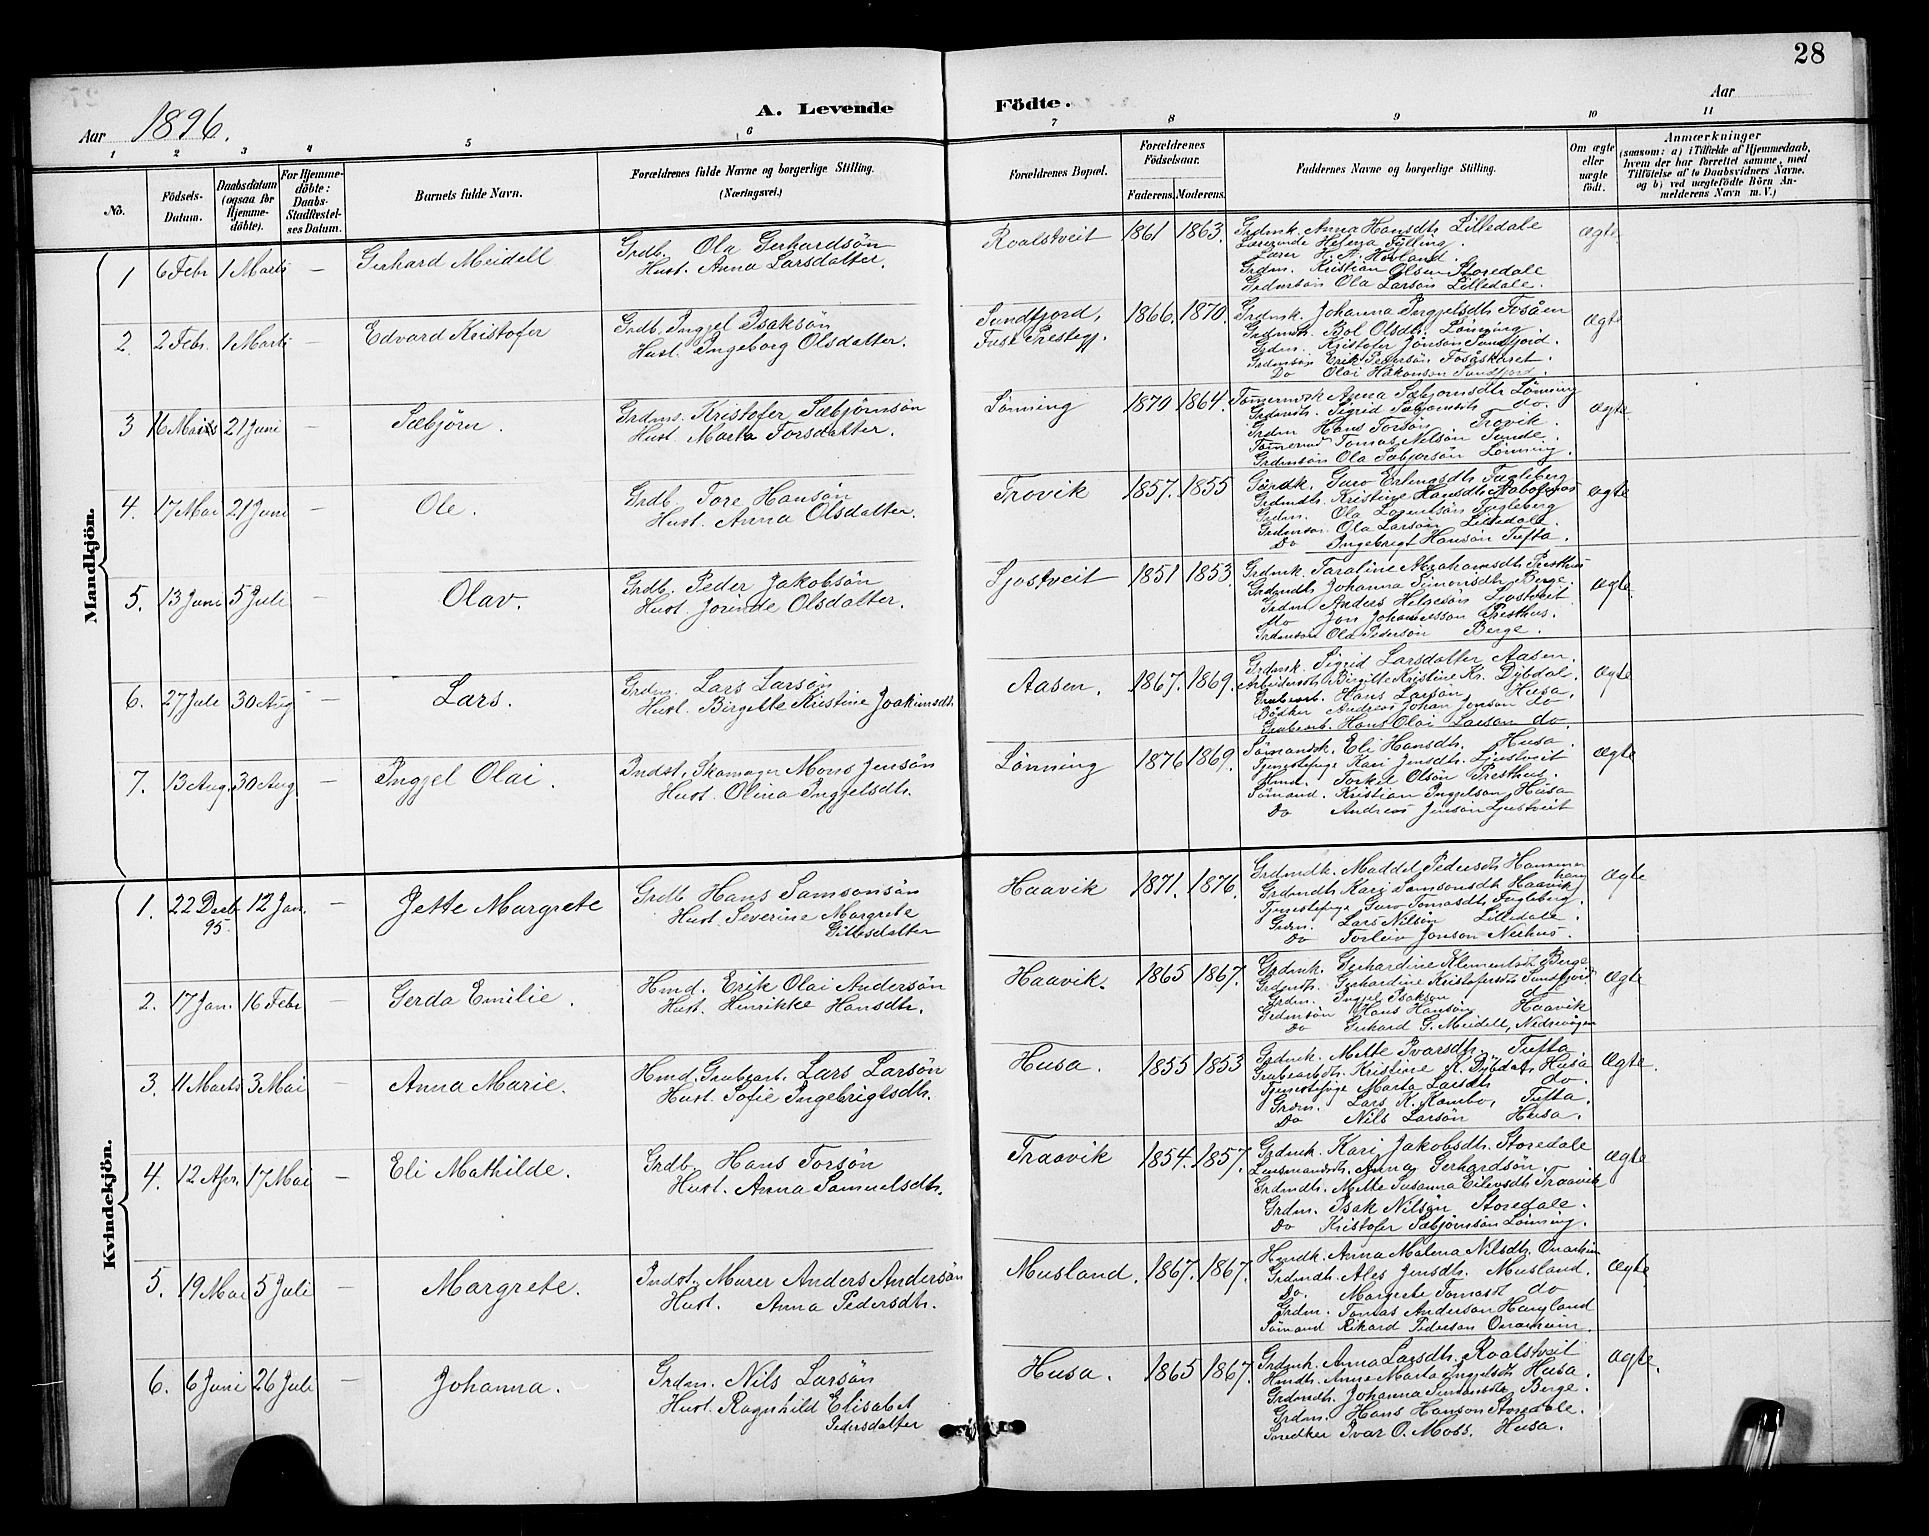 28
Aar 1896.
A. Levende Födte.
Aar
1 2 3 4 5 6 7 8 9 10 11
No.
Födsels-Datum.
Daabsdatum (ogsaa för Hjemme-döbte).
For Hjemme-döbte: Daabs-Stadfestel-ses Datum.
Barnets fulde Navn.
Forældrenes fulde Navne og borgerlige Stilling.
(Næringsvei.)
Forældrenes Bopæl.
Forældrenes Födselsaar.
Faderens. Moderens.
Faddernes Navne og borgerlige Stilling.
Om ægte eller uægte födt.
Anmærkninger
(saasom: a) i Tilfælde af Hjemmedaab,
hvem der har forrettet samme, med
Tilföielse af to Daabsvidners Navne,
og b) ved uægtefödte Börn An-
melderens Navn m. V.)
Mandkjön.
1 6 Febr 1 Marts — Gerhard Meidell
Grdb. Ola Gerhardsön
Hust. Anna Larsdatter.
Roalstveit 1861 1863.
Grdmk. Anna Hansdtr Lilledale
Lærerinde Helena Fylling.
Lærer H. A. Hovland.
Grdm. Kristian Olsen Storedale
Grdmsön Ola Larsön Lilledale.
Ægte
2. 2 Febr. 1 Marts — Edvard Kristofer
Grdb. Ingjel Isaksön
Hust. Ingeborg Olsdatter.
Sundfjord,
Fuse Prestegj.
1866. 1870.
Grdmk. Johanna Ingjelsdtr Fosåen
Grdmk. Bol Olsdtr. Lönning.
Grdm. Kristofer Jönsön Sundfjord.
Grdmsön Erik Pedersön Fosåskaret.
Do Olai Håkonsön Sundfjord.
Ægte
3 16 Mai 21 Juni — Sæbjörn.
Grdms. Kristofer Sæbjörnsön
Hust. Marta Torsdatter.
Lönning 1870 1864.
Tömermk Anna Sæbjornsdtr Lönning
Grdmdtr. Sigrid Sæbjornsdtr do.
Grdm Hans Torsön Trovik.
Tömermd Tomas Nilsön Sunde.
Grdmsön Ola Sæbjorsön Lönning.
Ægte
4. 17 Mai 21 Juni — Ole.
Grdb. Tore Hansön
Hust. Anna Olsdatter.
Trovik 1857. 1855
Gardk. Guro Erlingsdtr Fugleberg
Grdmdtr. Kristine Hansdtr
Grdm. Ola Larsön Fugleberg
Grdmsön Ola Larsön Lilledale.
Do Ingebrigt Hansön Tufta.
Ægte
5. 13 Juni 5 Juli — Olav.
Grdb. Peder Jakobsön
Hust. Jorinde Olsdatter.
Ljostveit 1851 1853.
Grdmk. Taraline Abrahamsdtr Presthus
Grdmdtr. Johanna Simonsdtr Berge.
Grdm Anders Helgesön Ljostveit
do Jon Johannesson Presthus.
Grdmsön Ola Pedersön Berge.
Ægte.
6. 27 Juli 30 Aug — Lars.
Grdm. Lars Larsön
Hust. Birgitte Kristine Joakimsdtr.
Aasen. 1867. 1869.
Grdmk. Sigrid Larsdatter Aasen.
Arbeidersdtr Birgitte Kristine Kr. Dybdal.
Grubearb. Hans Larsön, Husa.
Bödker Andreas Johan Jonson do
Grubearb. Hans Olai Larsen do.
Ægte
7. 13 Aug. 30 Aug. — Ingjel Olai.
Indst. Skomager Mons Jensön
Hust. Olina Ingjelsdtr.
Lönning 1876 1869.
Sömandsk. Eli Hansdtr. Husa.
Tjenestepige Kari Jensdtr. Ljostveit
Hmd. Torkel Olsön Presthus.
Sömand. Kristian Ingjelson, Husa
Do Andreas Jensön Ljostveit
Ægte
Kvindekjön.
1. 22 Decb 95. 12 Jan. — Jette Margrete
Grdb Hans Samsonsön
Hust Severine Margrete
Dittesdatter
Haavik 1871. 1876.
Grdmdk. Maddel Pedersdtr Hammerhaug
Grdmdtr Kari Samsonsdtr Haavik
Tjenestepige Guro Tomasdtr Fugleberg.
Grdm. Lars Nilsön Lilledale.
Do Torleiv Jonson Nerhus.
Ægte
2. 17 Jan. 16 Febr — Gerda Emilie.
Hmd. Erik Olai Andersön
Hust. Henrikke Hansdtr.
Haavik. 1865 1867.
Grdmk. Gerhardine Klementsdtr Berge
Grdmdtr. Gerhardine Kristofersdtr Sundfjord
Grdm. Ingjel Isakson, do
Grdmsön Hans Hansön Haavik
Do Gerhard G. Meidell, Nedrevågen
Ægte
3. 11 Marts 3 Mai — Anna Marie.
Hmd. Grubearb. Lars Larsön
Hust. Sofie Ingebrigtsdtr.
Husa. 1855 1853
Grdmk. Mette Ivarsdtr. Tufta
Grubearbdtr. Kristine K. Dybdal Husa
Tjenestepige Marta Larsdtr do.
Grdm. Lars K. Kambo, Tufta.
Do Nils Larsön Husa.
Ægte.
4. 12 Apr. 17 Mai — Eli Mathilde.
Grdb. Hans Torsön
Hust. Anna Samuelsdtr.
Traavik 1854. 1857.
Grdmk. Kari Jakobsdtr. Storedale
Lensmandsdtr. Anna Gerhardsön
Grdmdtr. Mette Susanna Eilevsdtr Traavik
Grdm. Isak Nilsön Storedale.
Do Kristofer Sæbjörnsön Lönning.
Ægte
5. 19 Mai 5 Juli — Margrete.
Indst. Murer Anders Andersön
Hust. Anna Pedersdtr.
Musland. 1867. 1867.
Hmdk. Anna Malena Nilsdtr. Onarheim
Grdmdtr. Ales Jensdtr. Musland.
Do. Margrete Tomasdt do
Grdm. Tomas Anderson Haugland
Sömand Rikard Pederson Onarheim.
Ægte
6. 6 Juni 26 Juli — Johanna.
Grdm. Nils Larsön
Hust. Ragnhild Elisabet
Pedersdatter
Husa. 1865 1867.
Grdmk. Anna Larsdtr. Roalstveit
Hmdtr. Anne Marta Ingjelsdtr Husa.
Grdmdtr. Johanna Simonsdtr Berge.
Grdm. Hans Hanson Storedale.
Snedker Ivar O. Moss. Husa.
Ægte.